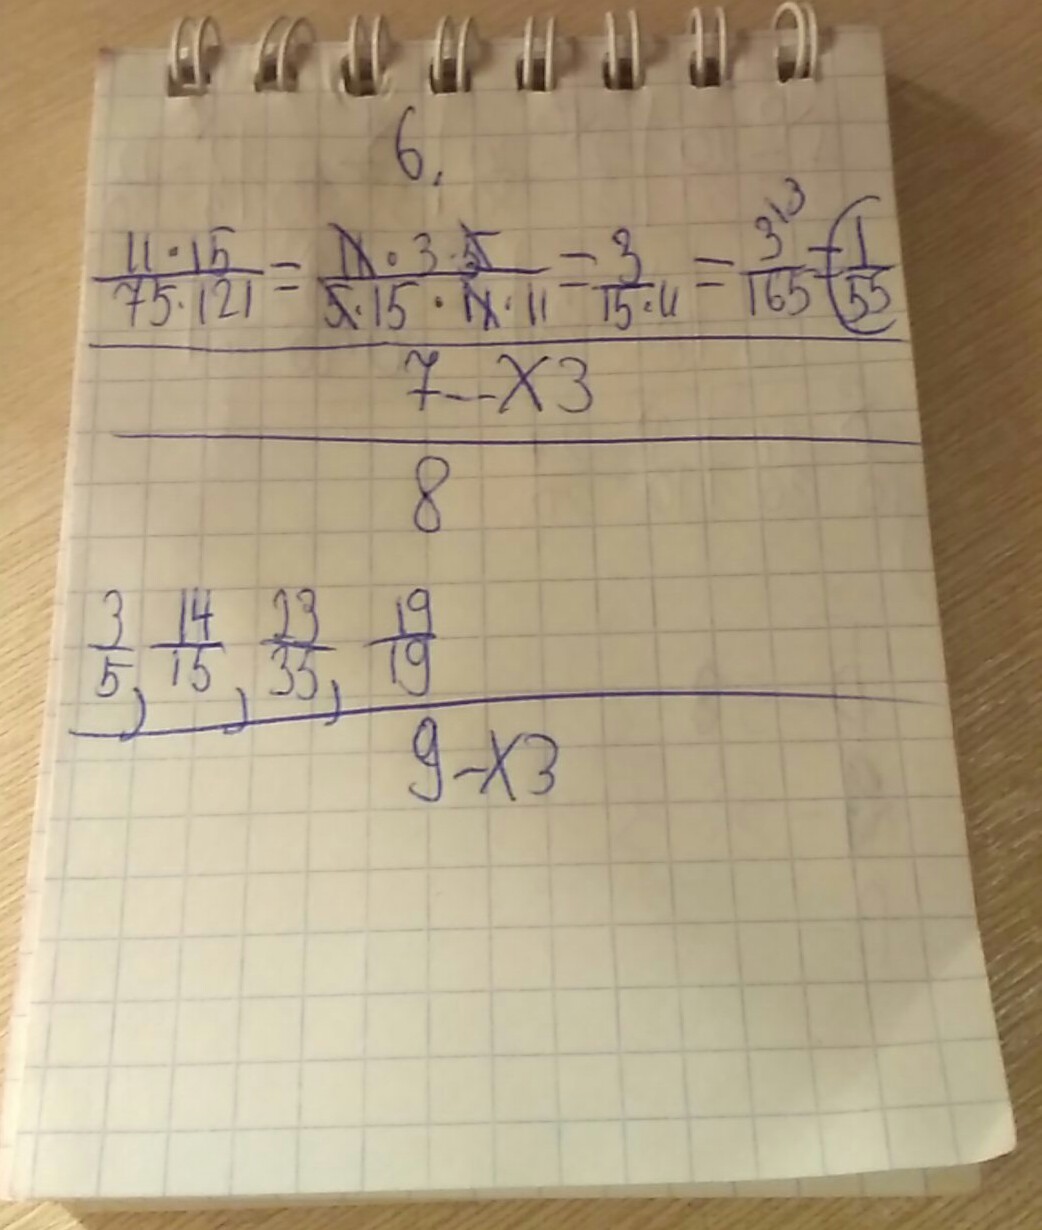 6.
11·15/75·121 = 11·3·5/5·15·11·11 = 3/15·11 = 3/165 \3 = 1/55
7--X3
8
3/5, 14/15, 23/35, 19/19
9-X3